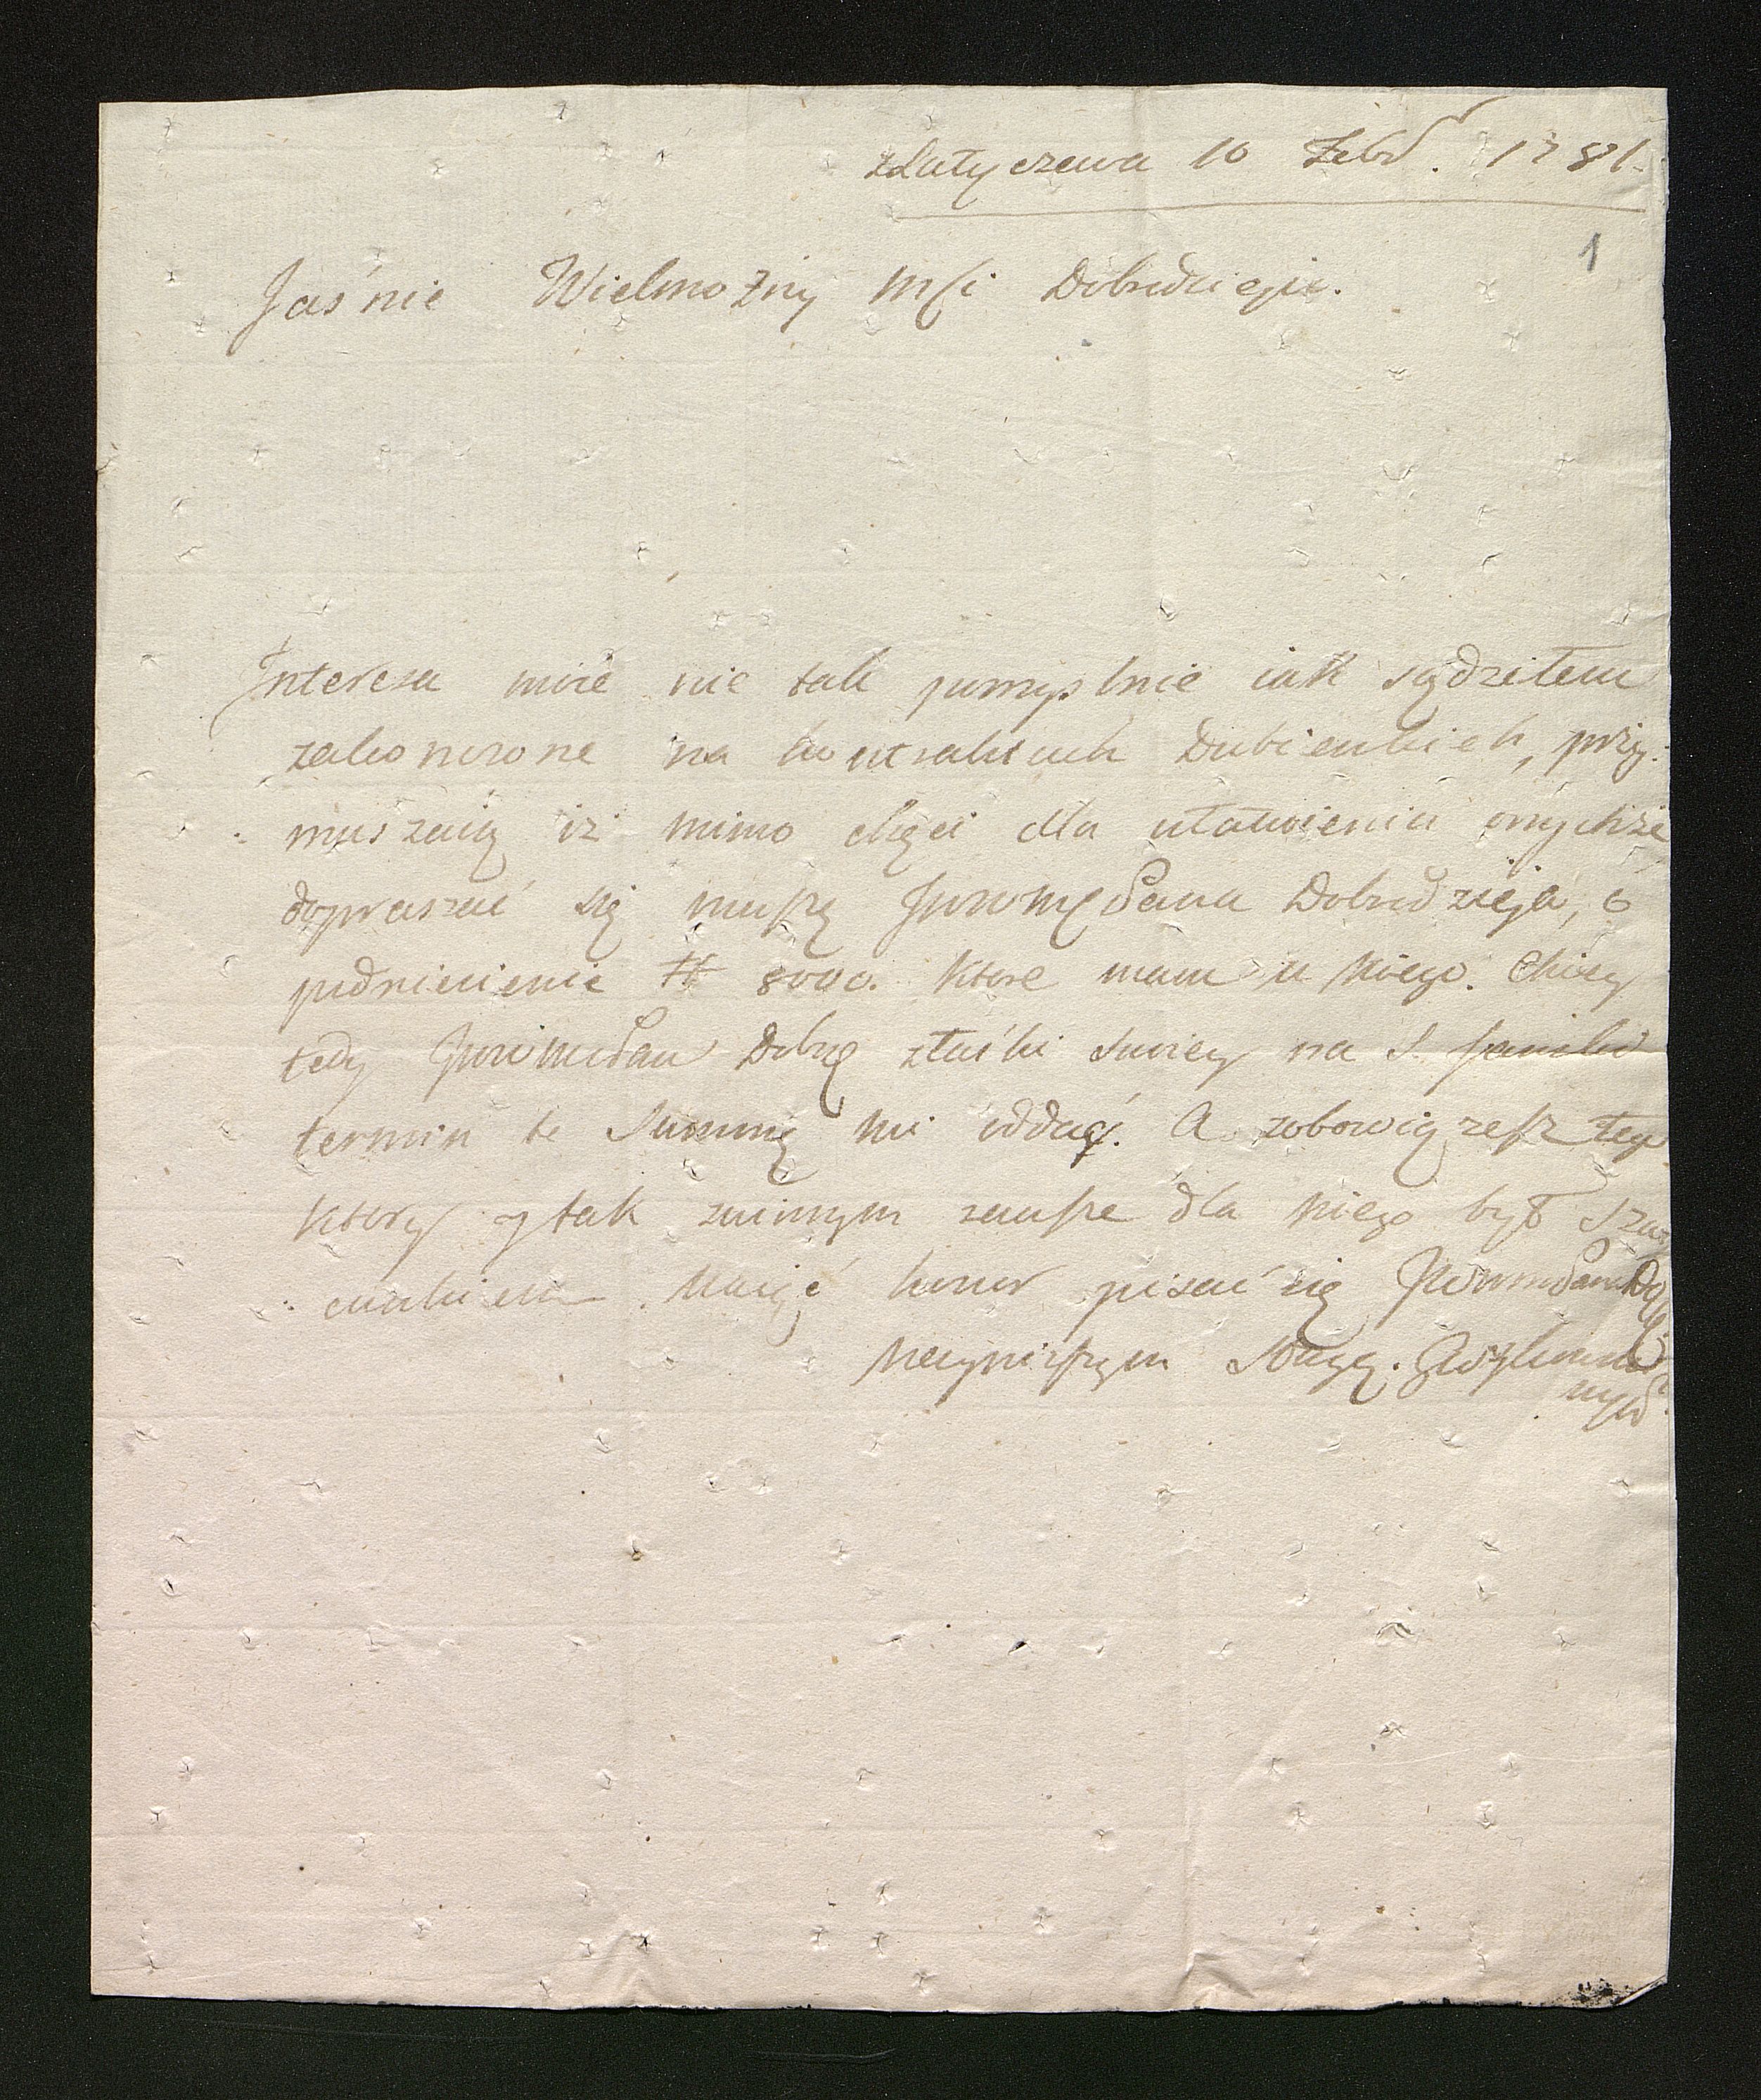 z Latyczewa 10 Febr. 1781.
1
Jaśnie Wielmożny Mći Dobrodzieju.
Interesa moie nie tak pomyslnie iak sądziłem
zakonczone na kontraktach Dubienskich, przy:
muszaią iż mimo chęci dla ułatwienia onychże
dopraszać się muszę JWWMć Pana Dobrodzieja, o
podniesienie # 8000. ktore mam u Niego. Chciey
tedy JWWMPan Dobrę z łaski swoiey na S.
termin te Summę mi oddać. A zobowiążesz tego
ktory y tak winnym zawsze dla Niego był Sza:
cunkiem. Maięć honor pisać się JWWMPana Do
Nayniższym Sługą.